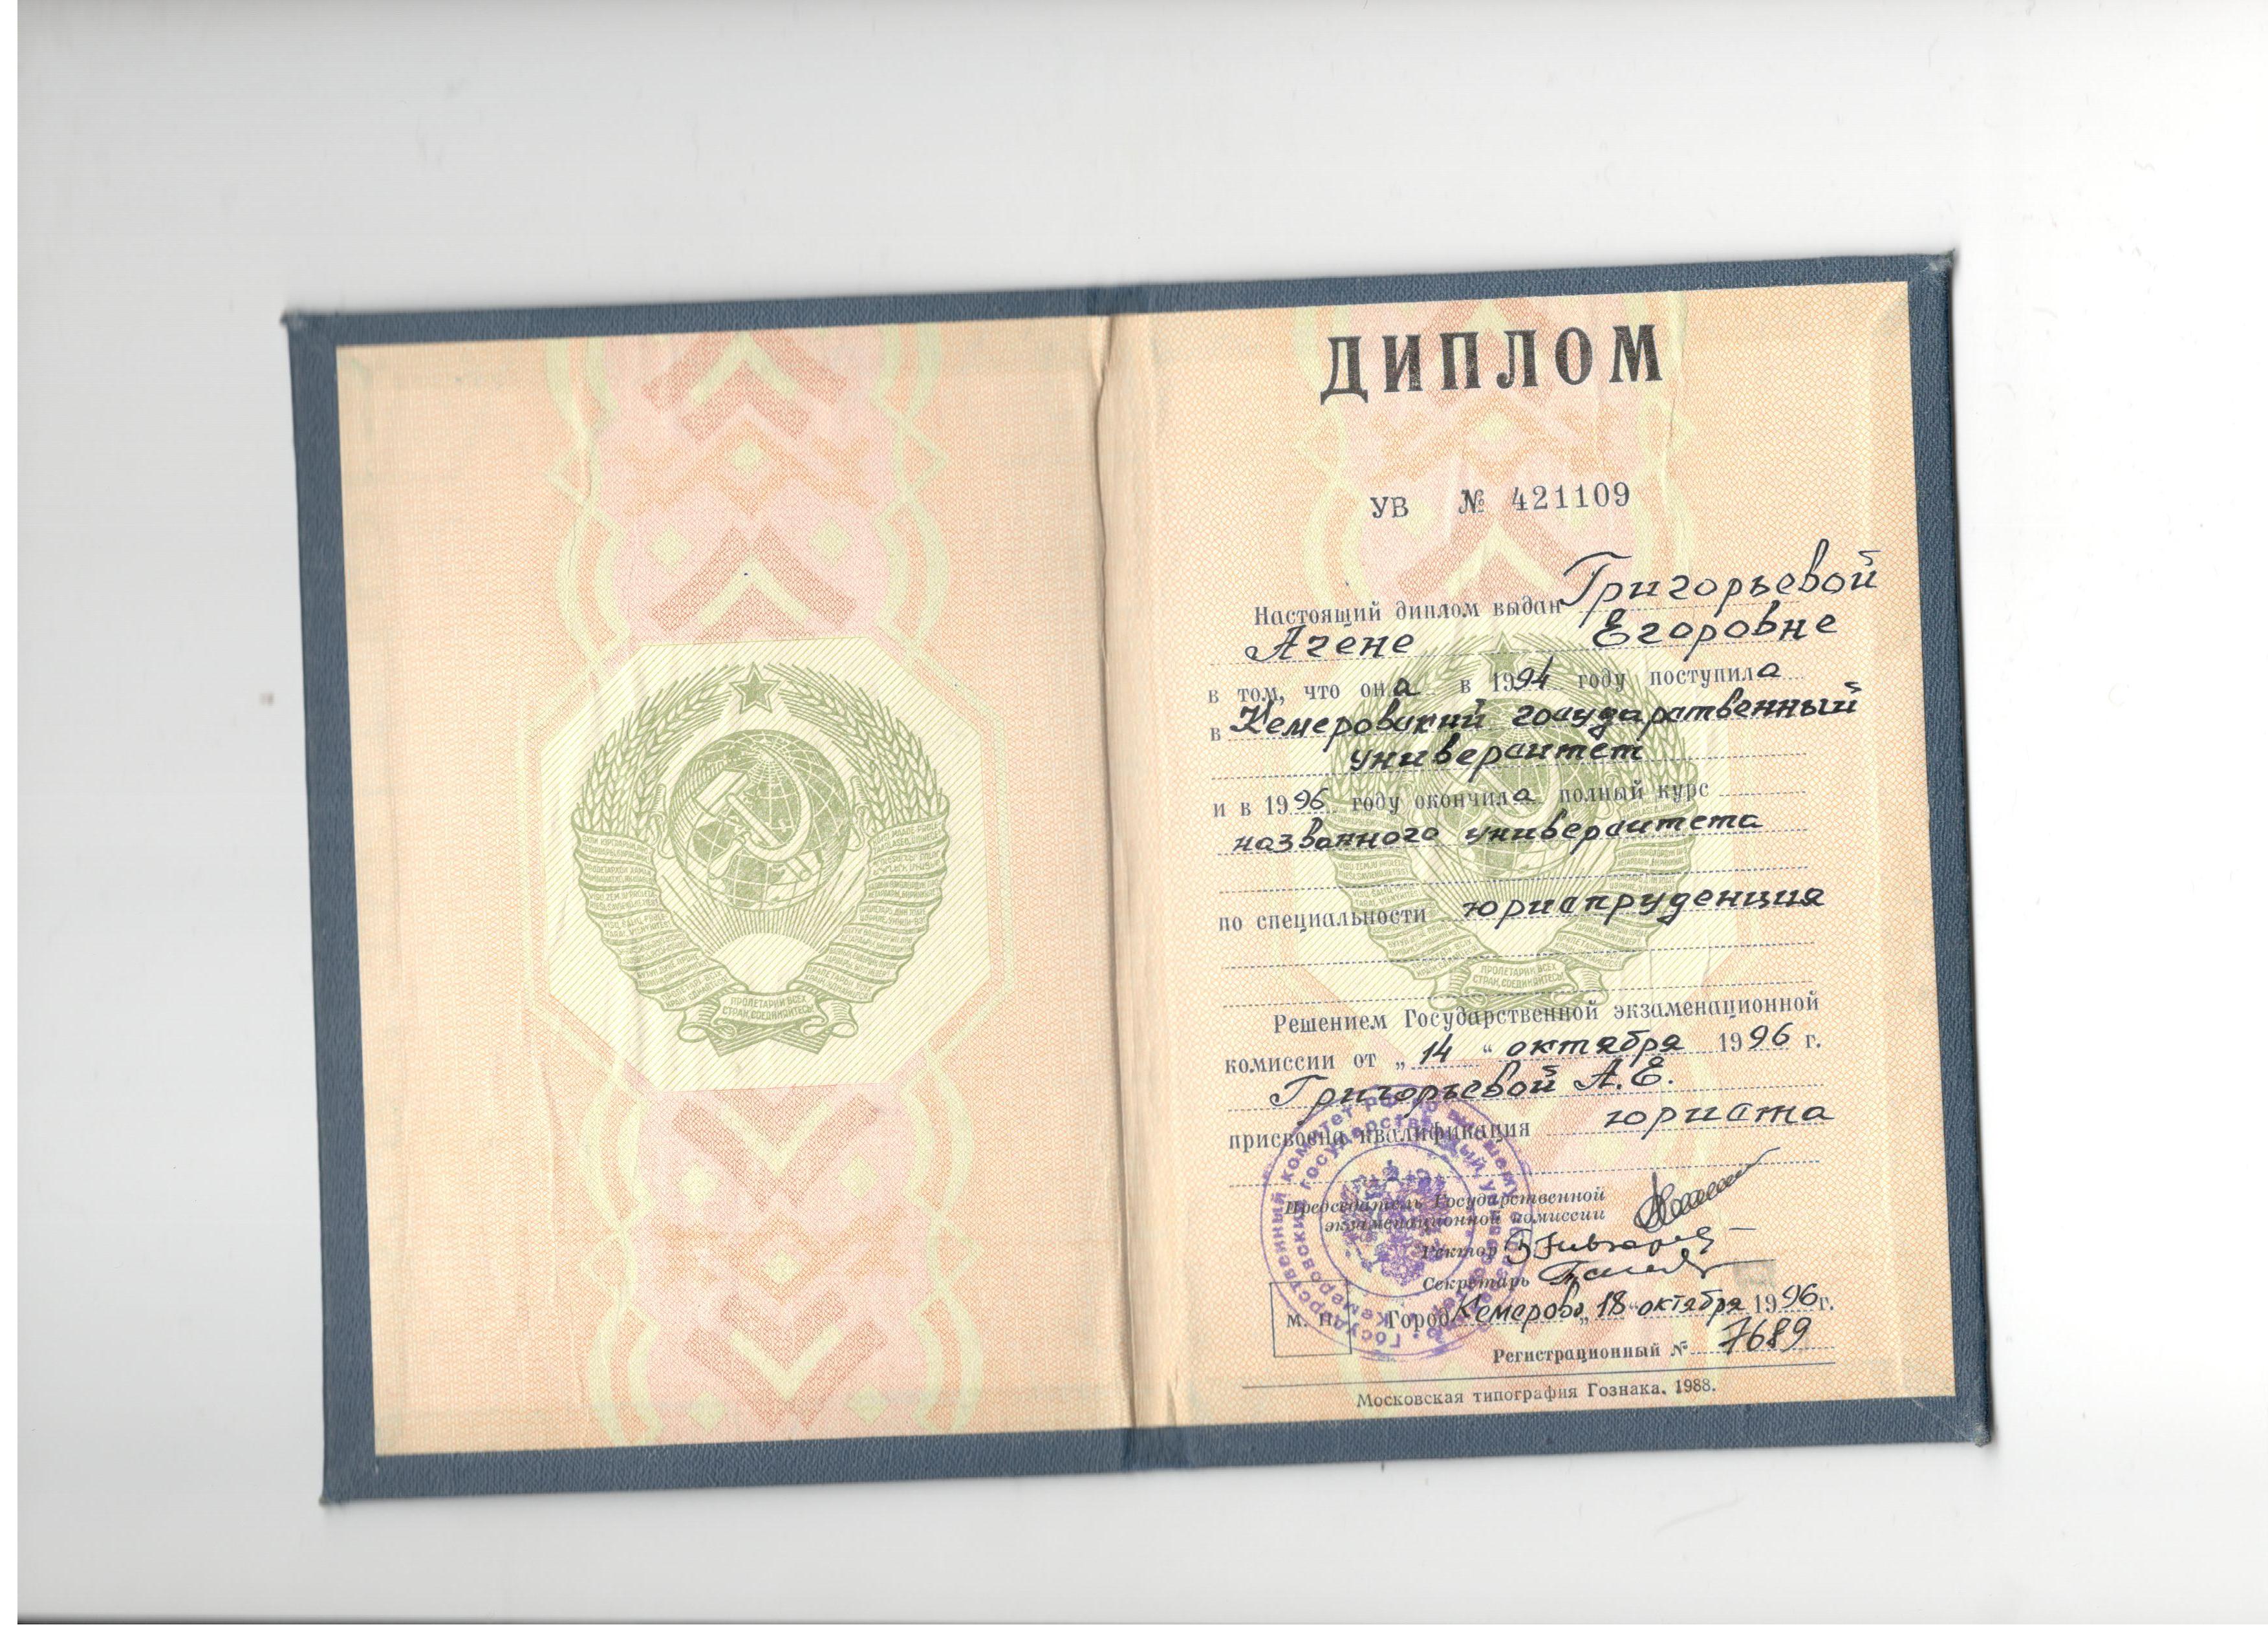 ДИПЛОМ
УВ № 421109
Настоящий диплом выдан Григорьевой
Агене Егоровне
в том, что она в 1994 году поступила
в Кемеровский государственный
университет
и в 1996 году окончила полный курс
названного университета
по специальности юриспруденция
Решением Государственной экзаменационной
комиссии от „14“ октября 1996 г.
Григорьевой А.Е.
присвоена квалификация юриста
Председатель Государственной
экзаменационной комиссии
Ректор
Секретарь
М. П. Город Кемерово „18“ октября 1996 г.
Регистрационный № 7689
Московская типография Гознака. 1988.
ПРОЛЕТАРИИ ВСЕХ
СТРАН, СОЕДИНЯЙТЕСЬ!
ПРОЛЕТАРИИ ВСЕХ
СТРАН, СОЕДИНЯЙТЕСЬ!